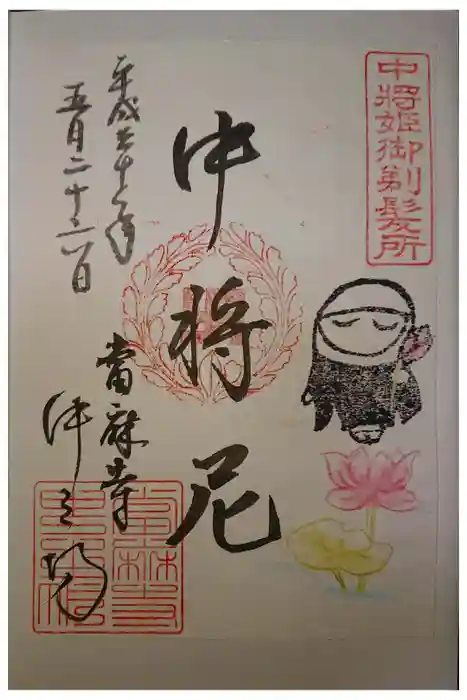 中將姫御剃髪所
中将尼
平成二十七年
五月二十六日
當麻寺
中之坊